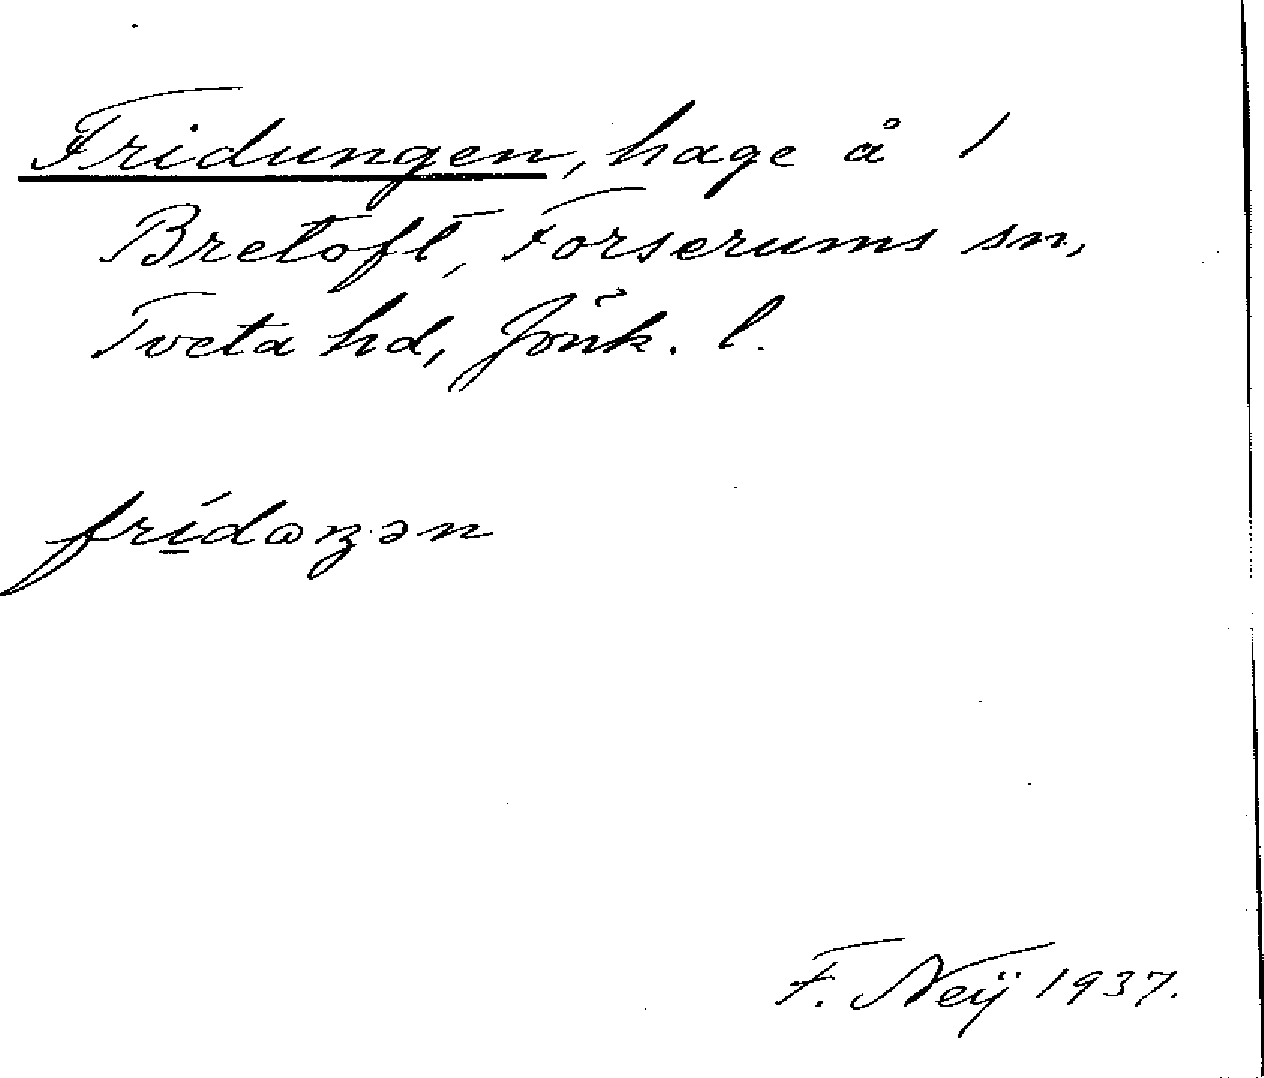 Fridungen, hage å 1
Bretoft, Forserums sn,
Tveta hd, Jönk. l.
frídωŋən
F. Neÿ 1937.